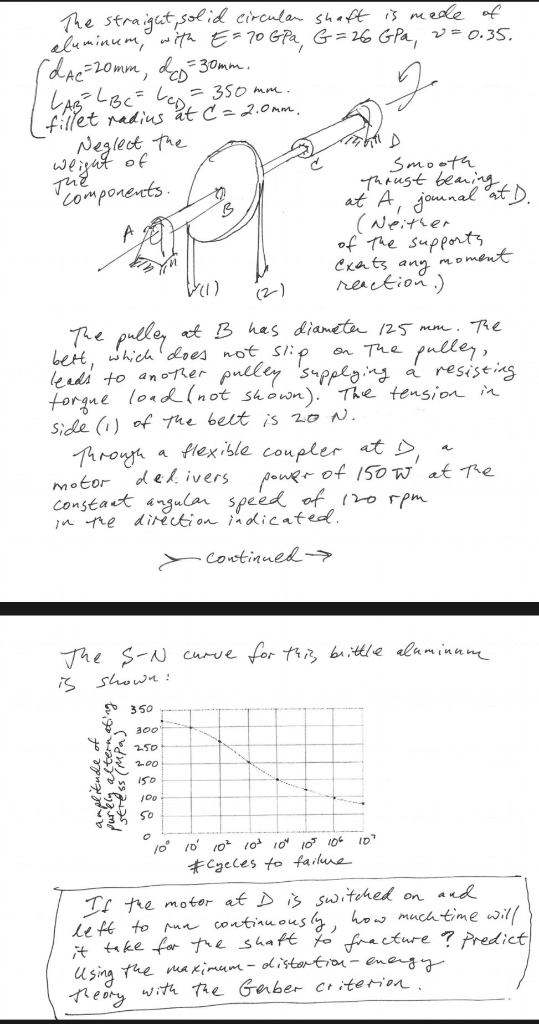 The straight, solid circular shaft is made of
aluminum, with E = 70 GPa, G = 26 GPa, ν = 0.35.
d_AC = 20mm, d_CD = 30mm.
L_AB = L_BC = L_CD = 350 mm.
fillet radius at C = 2.0mm.
Neglect the
weight of
the
components.
A
B
C
D
(1)
(2)
Smooth
thrust bearing
at A, journal at D.
(Neither
of the supports
exerts any moment
reaction.)
The pulley at B has diameter 125 mm. The
belt, which does not slip on the pulley,
leads to another pulley supplying a resisting
torque load (not shown). The tension in
side (1) of the belt is 20 N.
Through a flexible coupler at D, a
motor delivers power of 150 W at the
constant angular speed of 120 rpm
in the direction indicated.
continued →
The S-N curve for this brittle aluminum
is shown:
amplitude of
purely alternating
stress (MPa)
350
300
250
200
150
100
50
0
10⁰ 10¹ 10² 10³ 10⁴ 10⁵ 10⁶ 10⁷
# cycles to failure
If the motor at D is switched on and
left to run continuously, how much time will
it take for the shaft to fracture? Predict
using the maximum-distortion-energy
theory with the Gerber criterion.